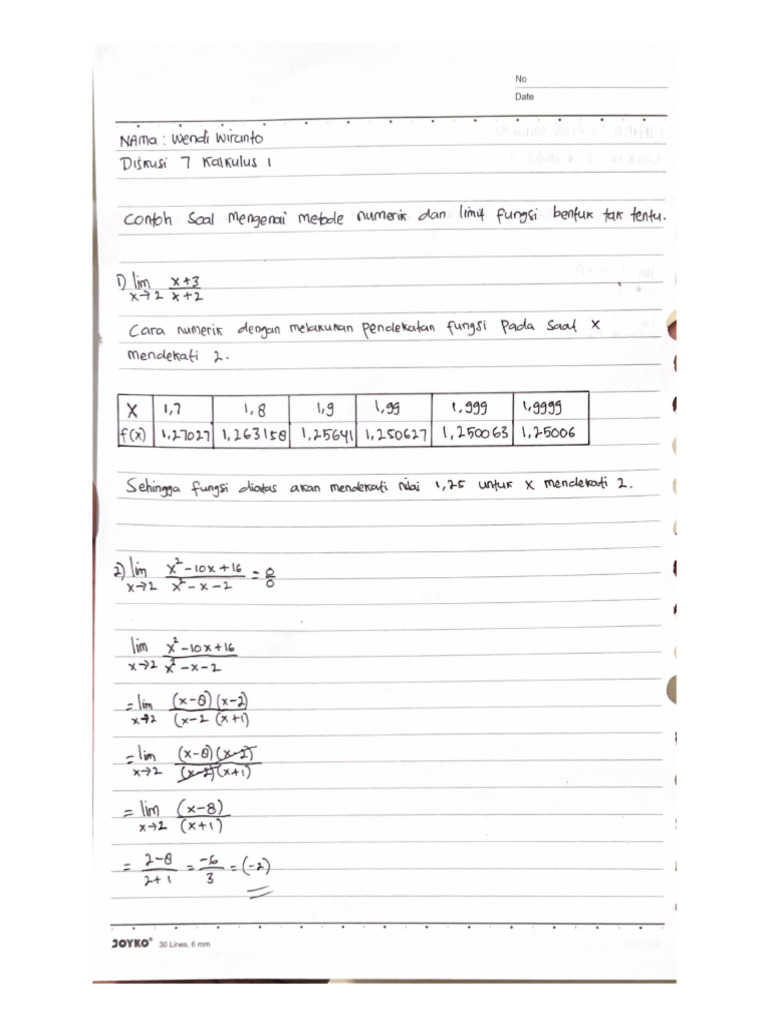 No
Date
Nama : Wendi Wiranto
Diskusi 7 Kalkulus 1
Contoh Soal Mengenai metode numerik dan limit fungsi bentuk tak tentu.
1) lim x+3
x→2 x+2
Cara numerik dengan melakukan pendekatan fungsi pada saat x
mendekati 2.
X 1,7 1,8 1,9 1,99 1,999 1,9999
f(x) 1,27027 1,263158 1,25641 1,250627 1,250063 1,25006
Sehingga fungsi diatas akan mendekati nilai 1,25 untuk x mendekati 2.
2) lim x²-10x+16 = 0
x→2 x²-x-2 0
lim x²-10x+16
x→2 x²-x-2
= lim (x-8)(x-2)
x→2 (x-2 (x+1)
= lim (x-8)(x-2)
x→2 (x-2)(x+1)
= lim (x-8)
x→2 (x+1)
= 2-8 = -6 = (-2)
2+1 3
JOYKO® 30 Lines, 6 mm